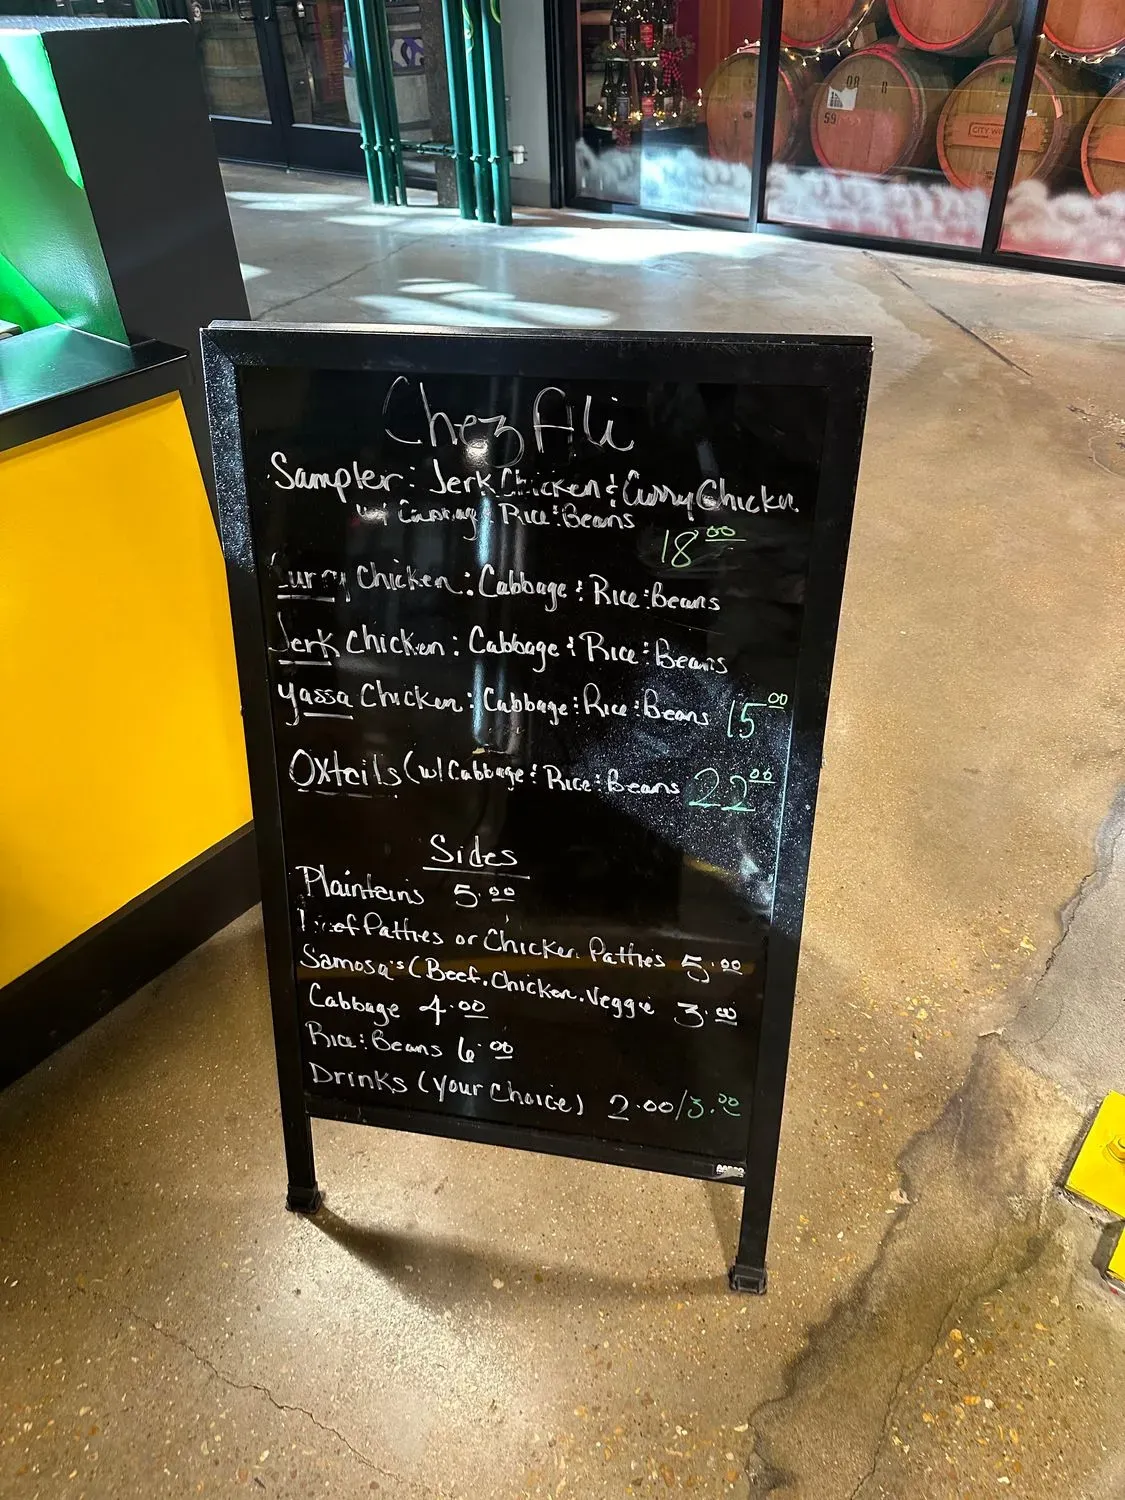 Chez Ali
Sampler: Jerk Chicken & Curry Chicken
w/ Cabbage & Rice & Beans
18.00
Curry Chicken: Cabbage & Rice & Beans
Jerk Chicken: Cabbage & Rice & Beans
Yassa Chicken: Cabbage & Rice & Beans 15.00
Oxtails (w/ Cabbage & Rice & Beans 22.00
Sides
Plaintains 5.00
Beef Patties or Chicken Patties 5.00
Samosa's (Beef, Chicken, Veggie 3.00
Cabbage 4.00
Rice & Beans 6.00
Drinks (Your Choice) 2.00/3.00
08 8
59
CITY WINERY